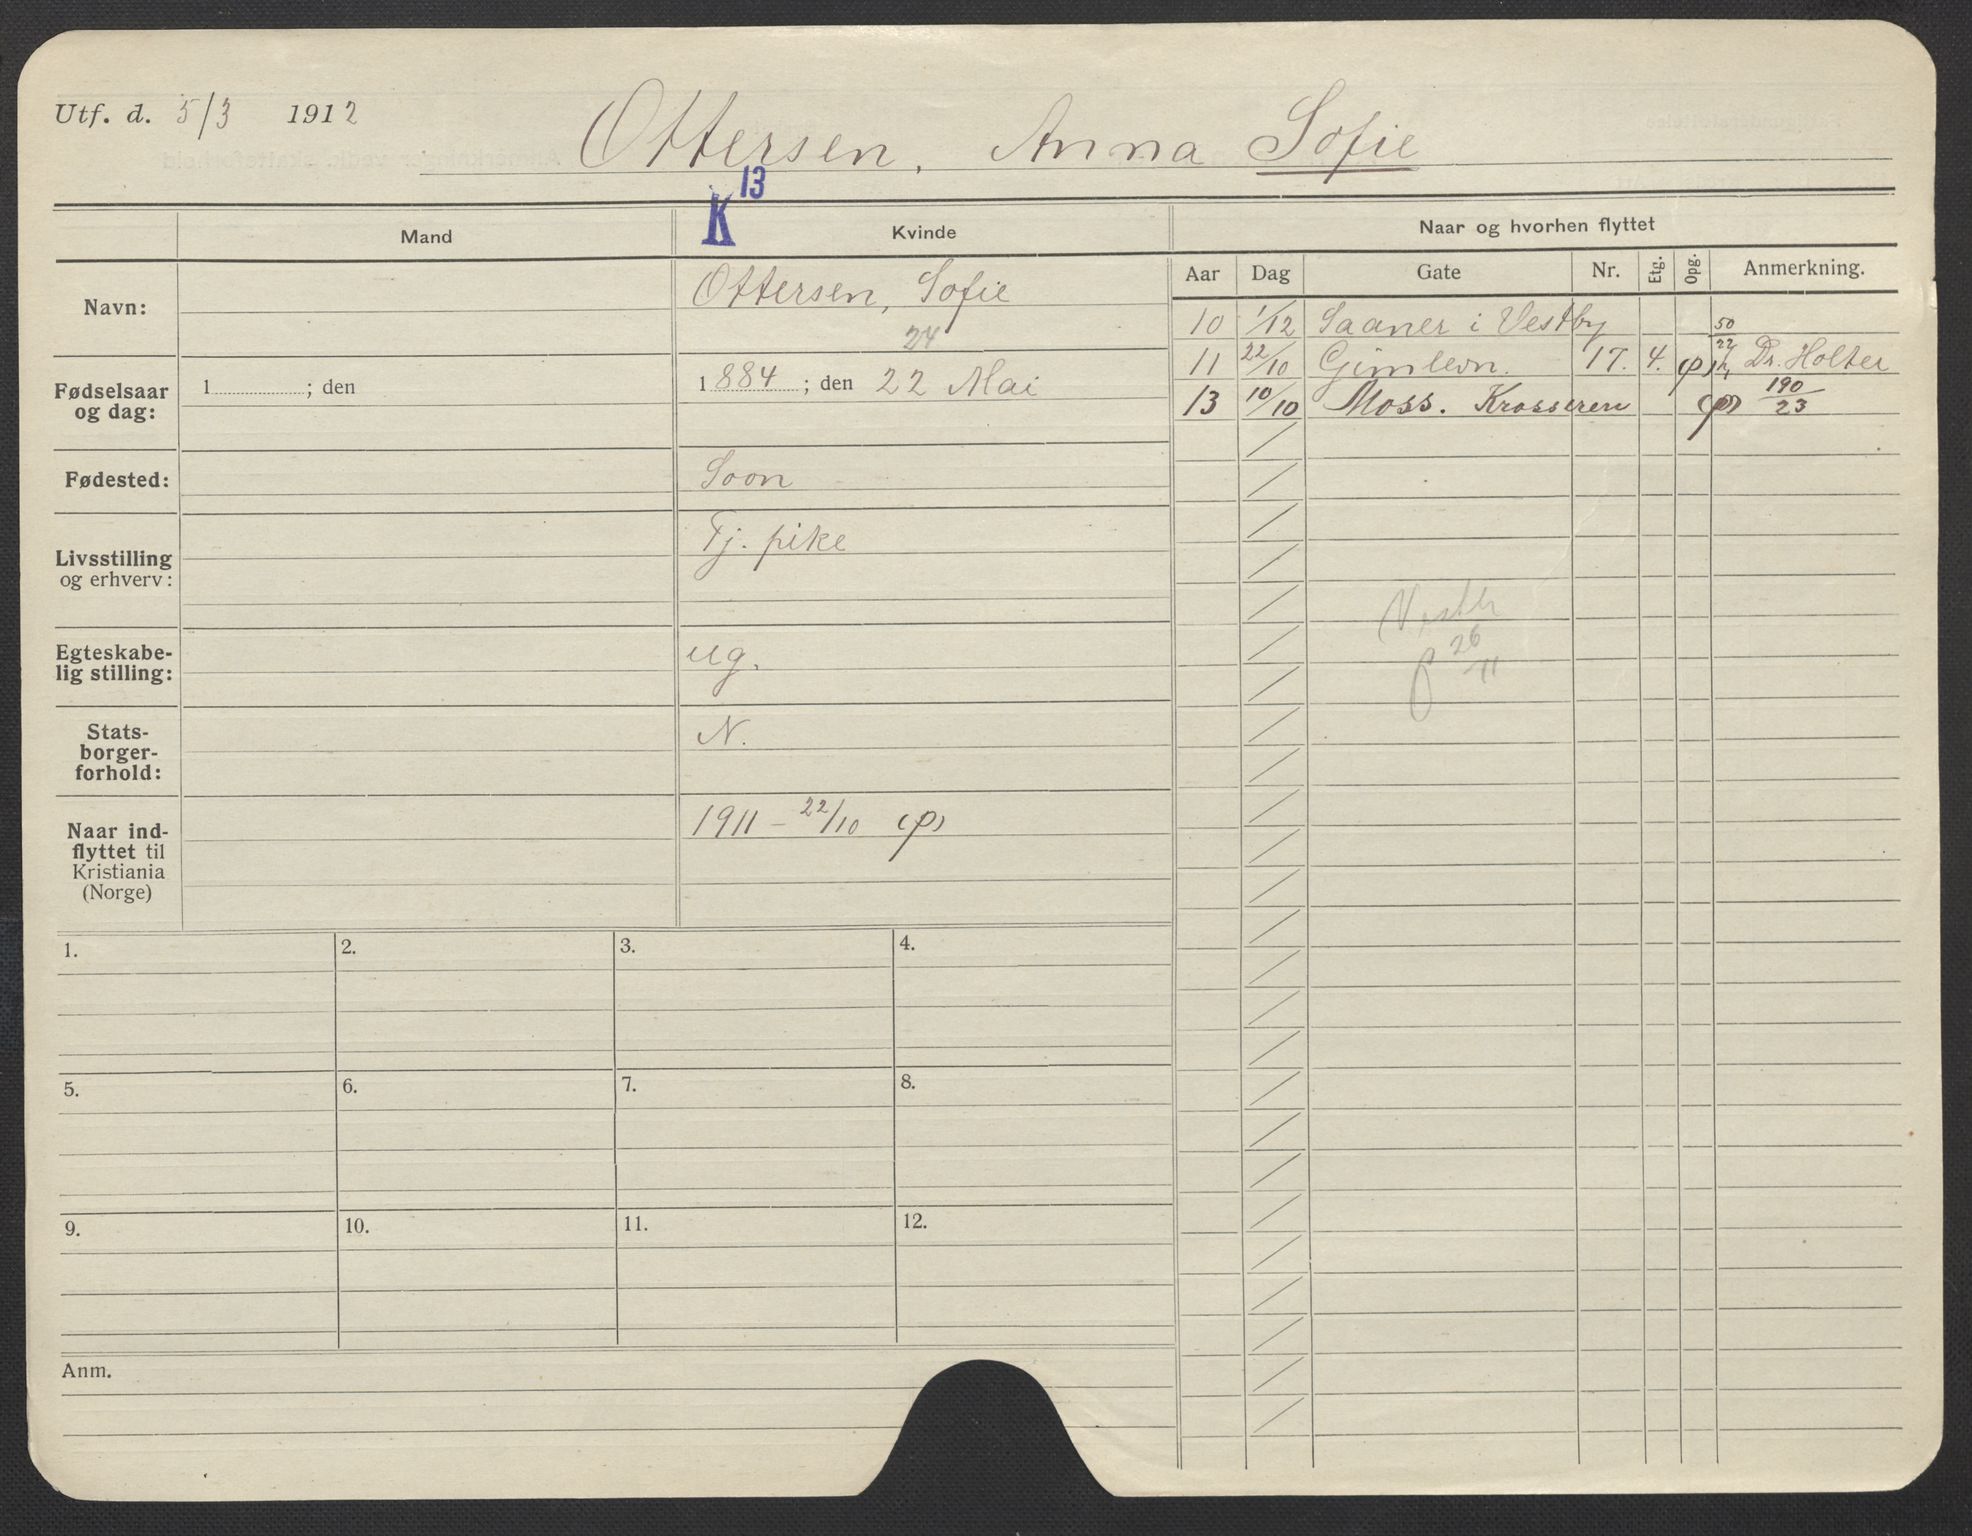 Utf. d. 5/3 1912
Ottersen, Anna Sofie
K 13
Mand
Kvinde
Naar og hvorhen flyttet
Aar Dag Gate Nr. Etg. Opg. Anmerkning.
Navn:
Ottersen, Sofie
24
10 1/12 Saaner i Vestby
50/22
11 22/10 Gimlevn. 17. 4. (p) Dr. Holter
13 10/10 Moss. Krosseren (p) 190/23
Fødselsaar
og dag:
1 ; den
1884 ; den 22 Mai
Fødested:
Soon
Livsstilling
og erhverv:
Tj. pike
Egteskabe-
lig stilling:
ug.
Stats-
borger-
forhold:
N.
Naar ind-
flyttet til
Kristiania
(Norge)
1911 - 22/10 (p)
Vestb
p 26/11
1. 2. 3. 4.
5. 6. 7. 8.
9. 10. 11. 12.
Anm.